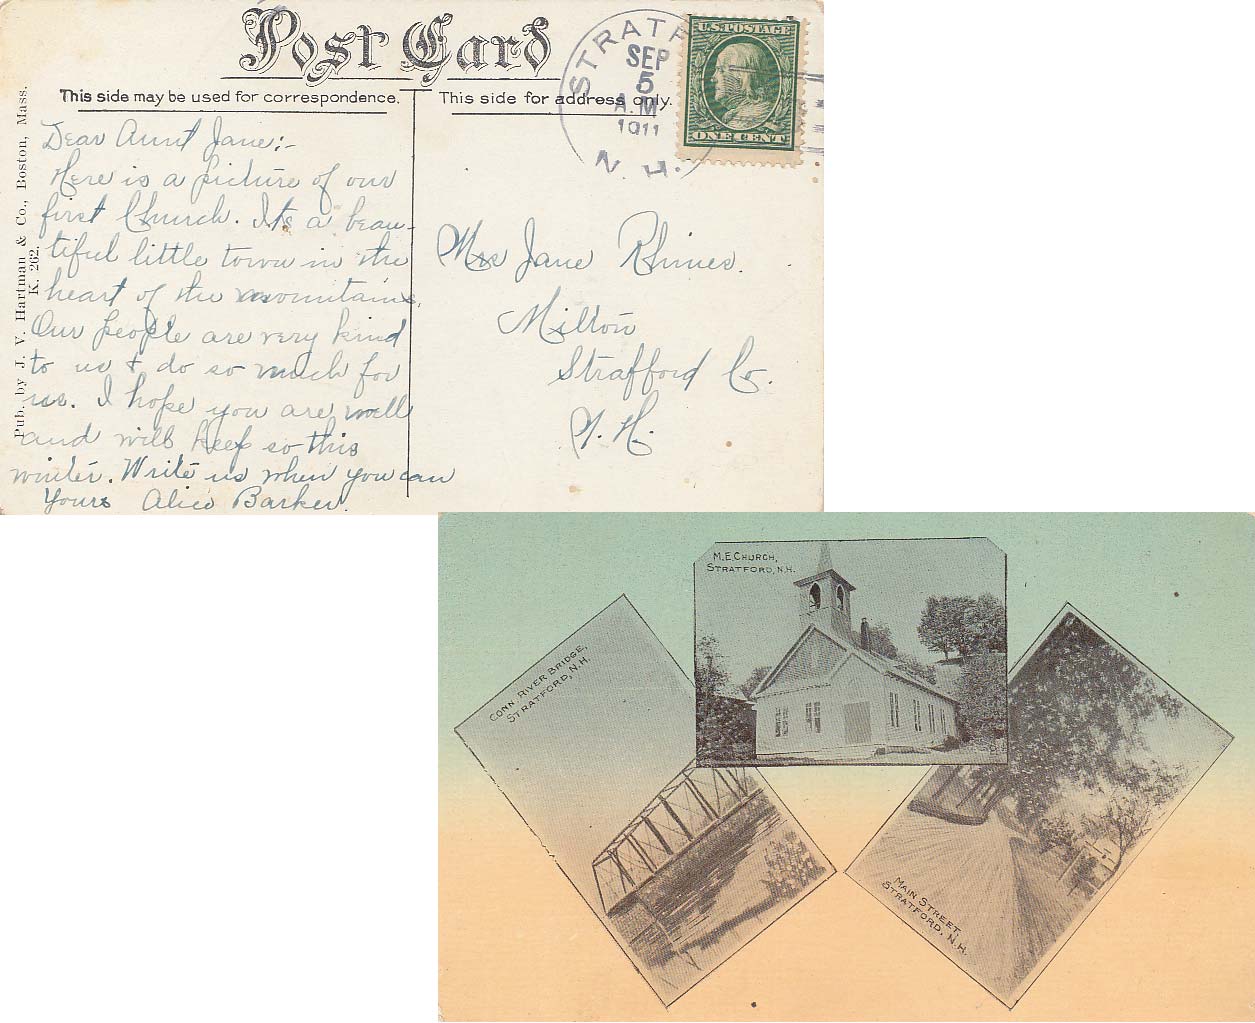 Post Card
This side may be used for correspondence.
This side for address only.
STRATF
SEP
5
A.M
1911
N. H.
U.S. POSTAGE
ONE CENT
Pub. by J. V. Hartman & Co., Boston, Mass.
K. 262.
Dear Aunt Jane:-
Here is a picture of our
first Church. Its a beau-
tiful little town in the
heart of the mountains.
Our people are very kind
to us & do so much for
us. I hope you are well
and will keep so this
winter. Write us when you can
Yours Alice Barker.
Mrs Jane Rhines.
Milton
Strafford Co.
N. H.
M.E. CHURCH,
STRATFORD, N.H.
CONN RIVER BRIDGE,
STRATFORD, N.H.
MAIN STREET,
STRATFORD, N.H.